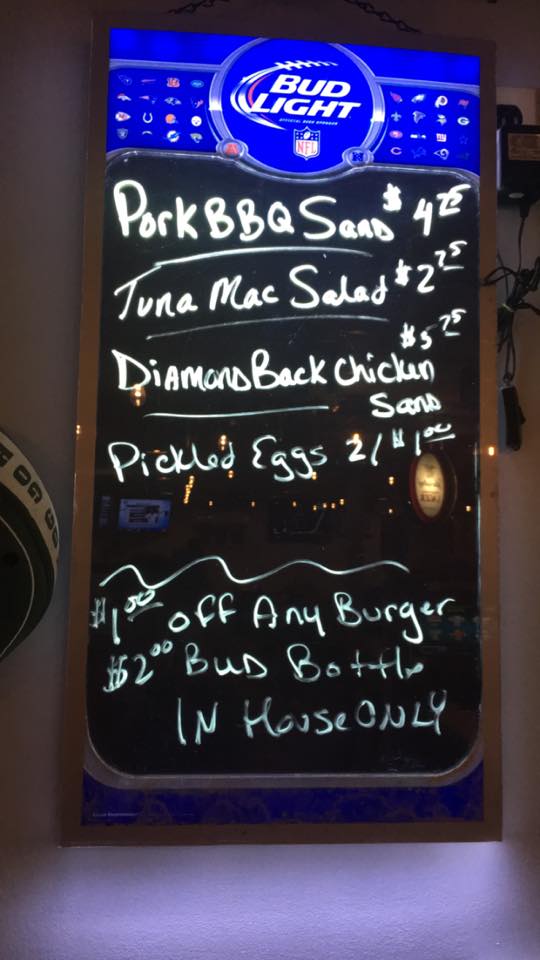 BUD
LIGHT
OFFICIAL BEER SPONSOR
NFL
PORK BBQ SAND $4 25
Tuna Mac Salad $2 75
$5 75
DIAMONDBACK Chicken
SAND
Pickled Eggs 2/$1 00
$1 00 off Any Burger
$2 00 BUD Bottle
IN House ONLY